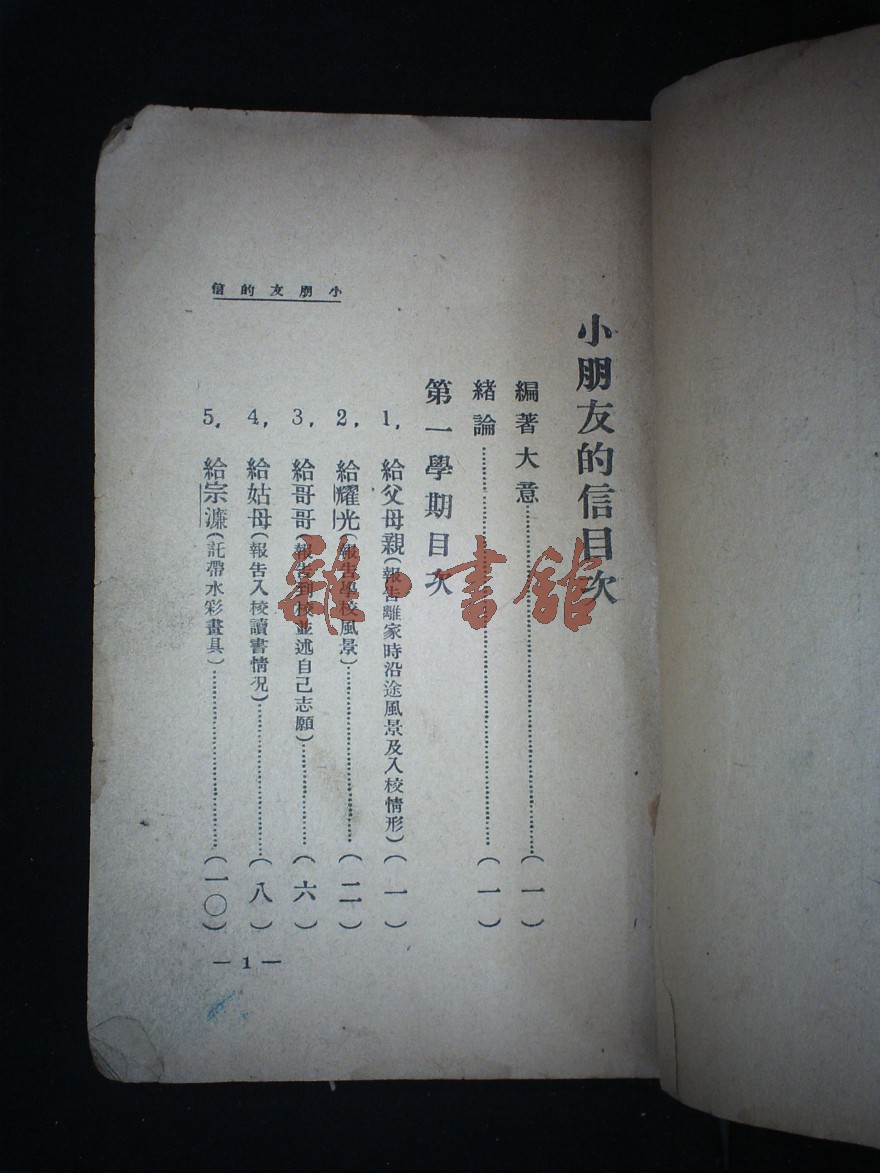 小朋友的信目次
編著大意……(一)
緒論……(一)
第一學期目次
1, 給父母親(報告離家時沿途風景及入校情形)(一)
2, 給耀光(報告學校風景)……(二)
3, 給哥哥(報告到校並述自己志願)……(六)
4, 給姑母(報告入校讀書情況)……(八)
5, 給宗濂(託帶水彩畫具)……(一〇)
小朋友的信
— 1 —
書館